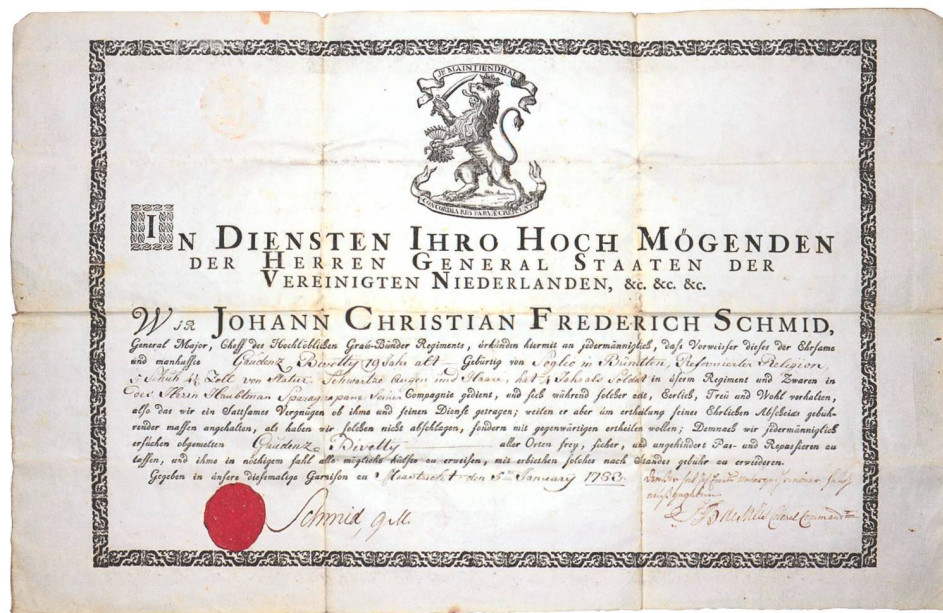 JE MAINTIENDRAI
CONCORDIA RES PARVÆ CRESCUNT
IN DIENSTEN IHRO HOCH MÖGENDEN
DER HERREN GENERAL STAATEN DER
VEREINIGTEN NIEDERLANDEN, &c. &c. &c.
WIR JOHANN CHRISTIAN FREDERICH SCHMID,
General Major, Cheff des Hochlöblichen Grau-Bünder Regiments, urkünden hiermit an jedermänniglich, dass Vorweisser dieser der Ehrsame
und manhaffte Gaudenz Bivetty 19 Jahr alt Gebürtig von Soglio in Bündten, Reformierter Religion,
5 Schuh 4½ Zoll von Statur Schwartze Augen und Haare, hat Jahr als Soldat in üserm Regiment und Zwaren in
des Herrn Haubtman Sparagnapane Seiner Compagnie gedient, und sich während solcher zeit, Eerlich, Treü und Wohl verhalten,
also das wir ein Sattsames Vergnügen ob ihme und seinen Dienst getragen; weilen er aber um ertheilung seines Ehrlichen Abscheids gebüh-
render massen angehalten, als haben wir solchen nicht abschlagen, sondern mit gegenwärtigen ertheilen wollen; Demnach wir jedermänniglich
ersuchen obgemelten Gaudenz Bivetty aller Orten frey, sicher, und ungehindert Pas- und Repassieren zu
lassen, und ihme in nöthigem fahl alle mögliche hülffe zu erweisen, mit erbiethen solcher nach Standes gebühr zu erwiederen.
Gegeben in unsere diessmalige Garnison zu Maastricht den 5ten January 1783.
Schmid, G M.
Colonel Commandt